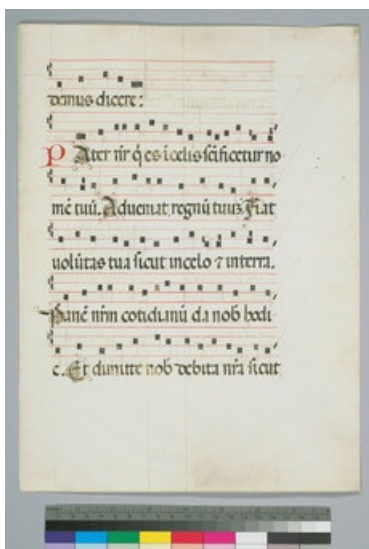 demus dicere:
Pater nr̄ q̄ es ī celis scīficetur no
mē tuū. Adueniat regnū tuuȝ. Fiat
uolūtas tua sicut in celo ⁊ in terra.
Panē nr̄m cotidianū da nob̄ hodi
e. Et dimitte nob̄ debita nr̄a sicut